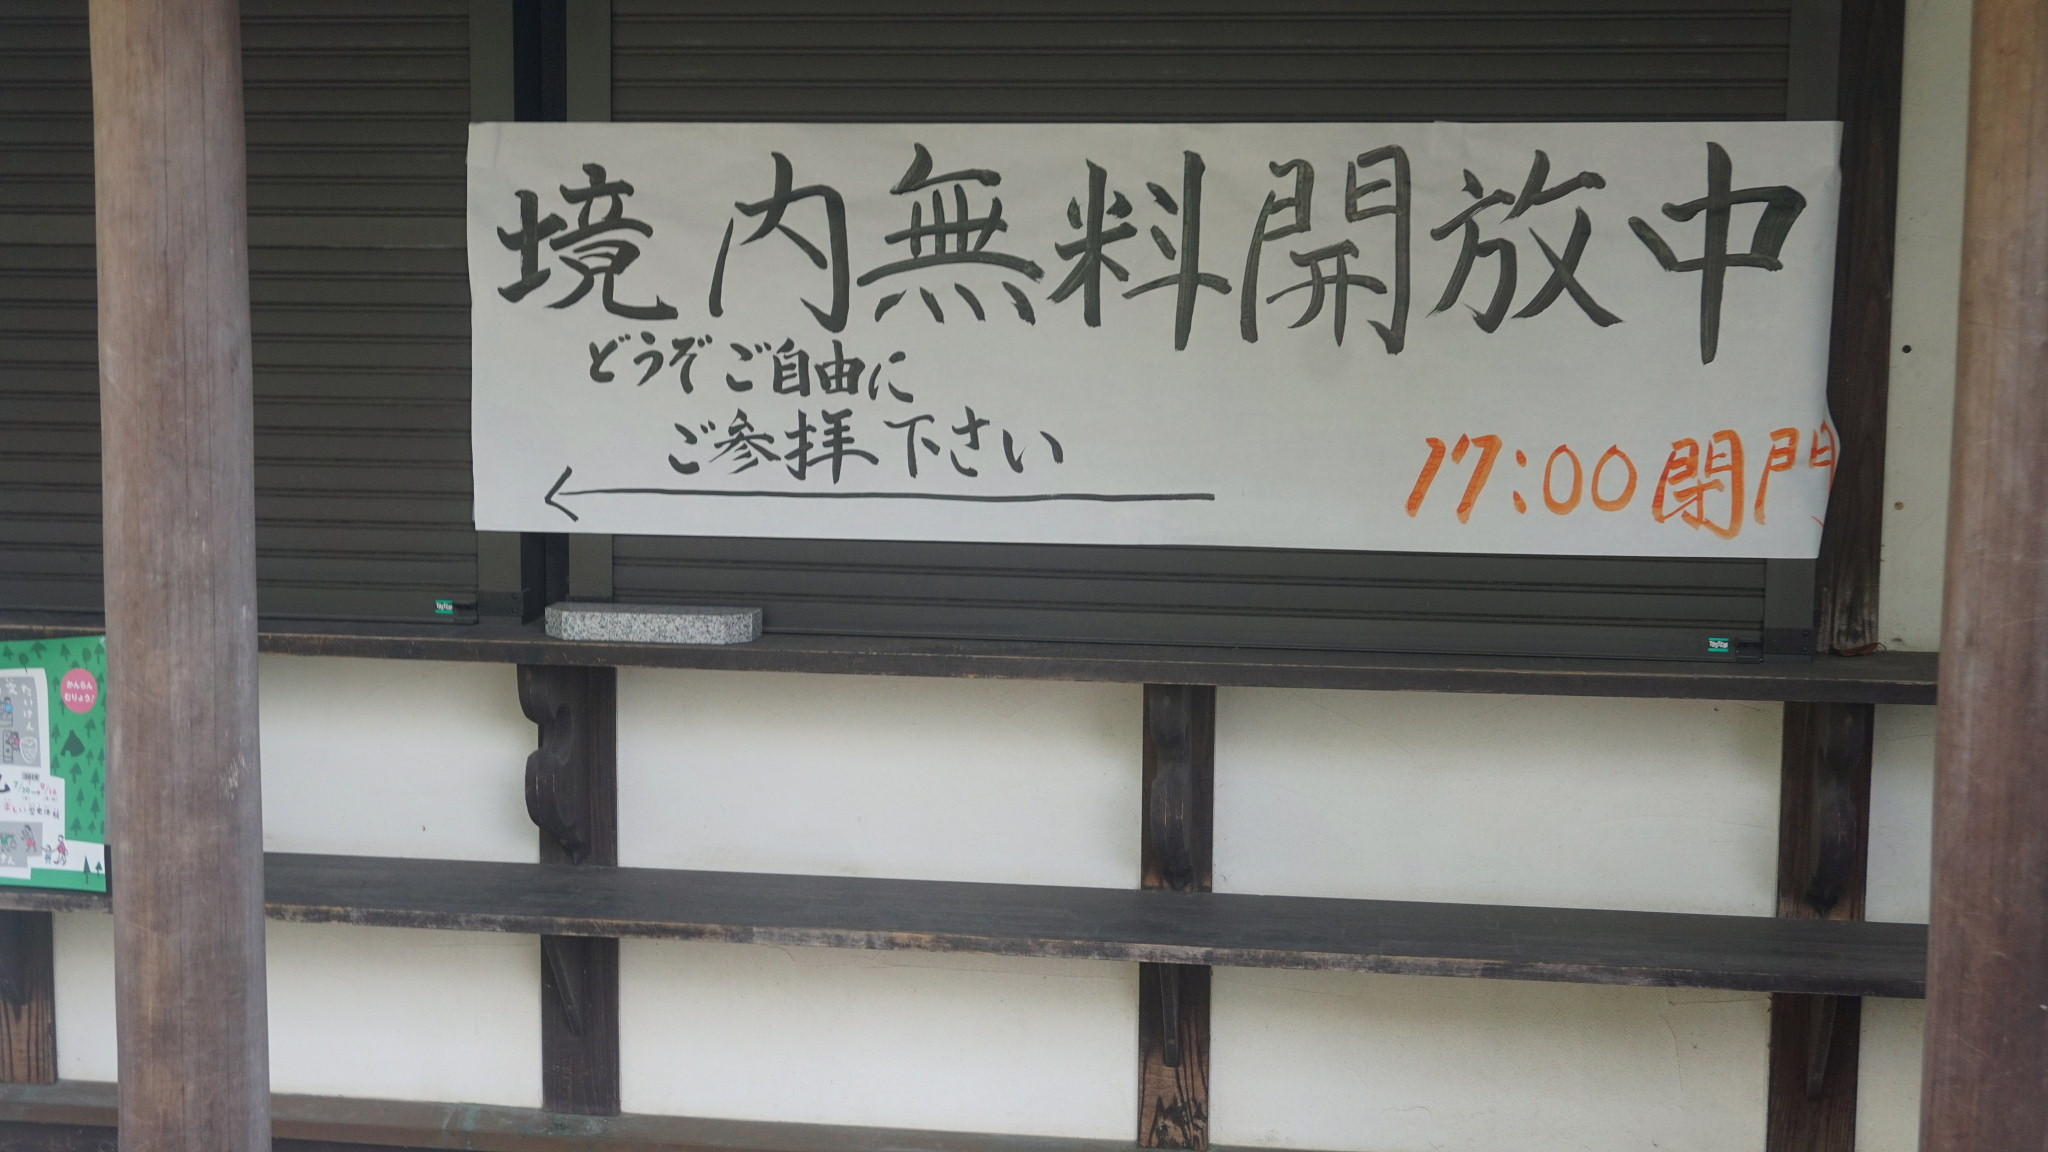 境内無料開放中
どうぞご自由に
ご参拝下さい
17:00閉門
かんらん
むりょう!
たいけん